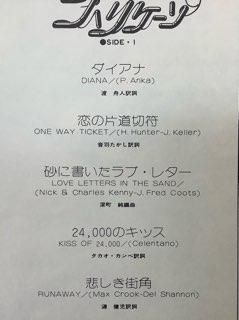 ハリケーン
●SIDE・1
ダイアナ
DIANA／(P. Anka)
渡 舟人訳詞
恋の片道切符
ONE WAY TICKET／(H. Hunter-J. Keller)
音羽たかし訳詞
砂に書いたラブ・レター
LOVE LETTERS IN THE SAND／
(Nick & Charles Kenny-J. Fred Coots)
深町 純編曲
24,000のキッス
KISS OF 24,000／(Celentano)
タカオ・カンベ訳詞
悲しき街角
RUNAWAY／(Max Crook-Del Shannon)
漣 健児訳詞